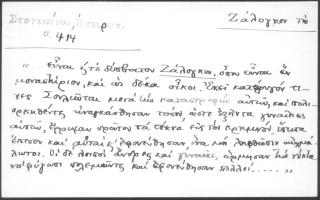 Στοχείοίου, Ηπειρωτ.
σ. 414
Ζάλογκον τὸ
"... εἶναι ἐς τὸ δύσβατον Ζάλογκον, ὅπου εἶναι ἓν
μοναστήριον, καὶ ὡς δέκα οἶκοι. Ἐκεῖ κατέφυγόν τι-
νες Σουλιῶται μετὰ τὴν καταστροφὴν αὐτῶν, καὶ πολι-
ορκηθέντες ἠναγκάσθησαν τόσον, ὥστε ἑξήντα γυναῖκες
αὐτῶν, ἔρριψαν πρῶτον τὰ τέκνα εἰς τοὺς κρημνοὺς, ἔπειτα
ἔπεσον καὶ αὐταὶ καὶ ἐφονεύθησαν, ἵνα μὴ ληφθῶσιν αἰχμά-
λωτοι. Οἱ δὲ λοιποὶ ἄνδρες καὶ γυναῖκες, ὥρμησαν τὴν νύκτα
νὰ φύγωσι πολεμοῦντες καὶ ἐφονεύθησαν πολλοί......."